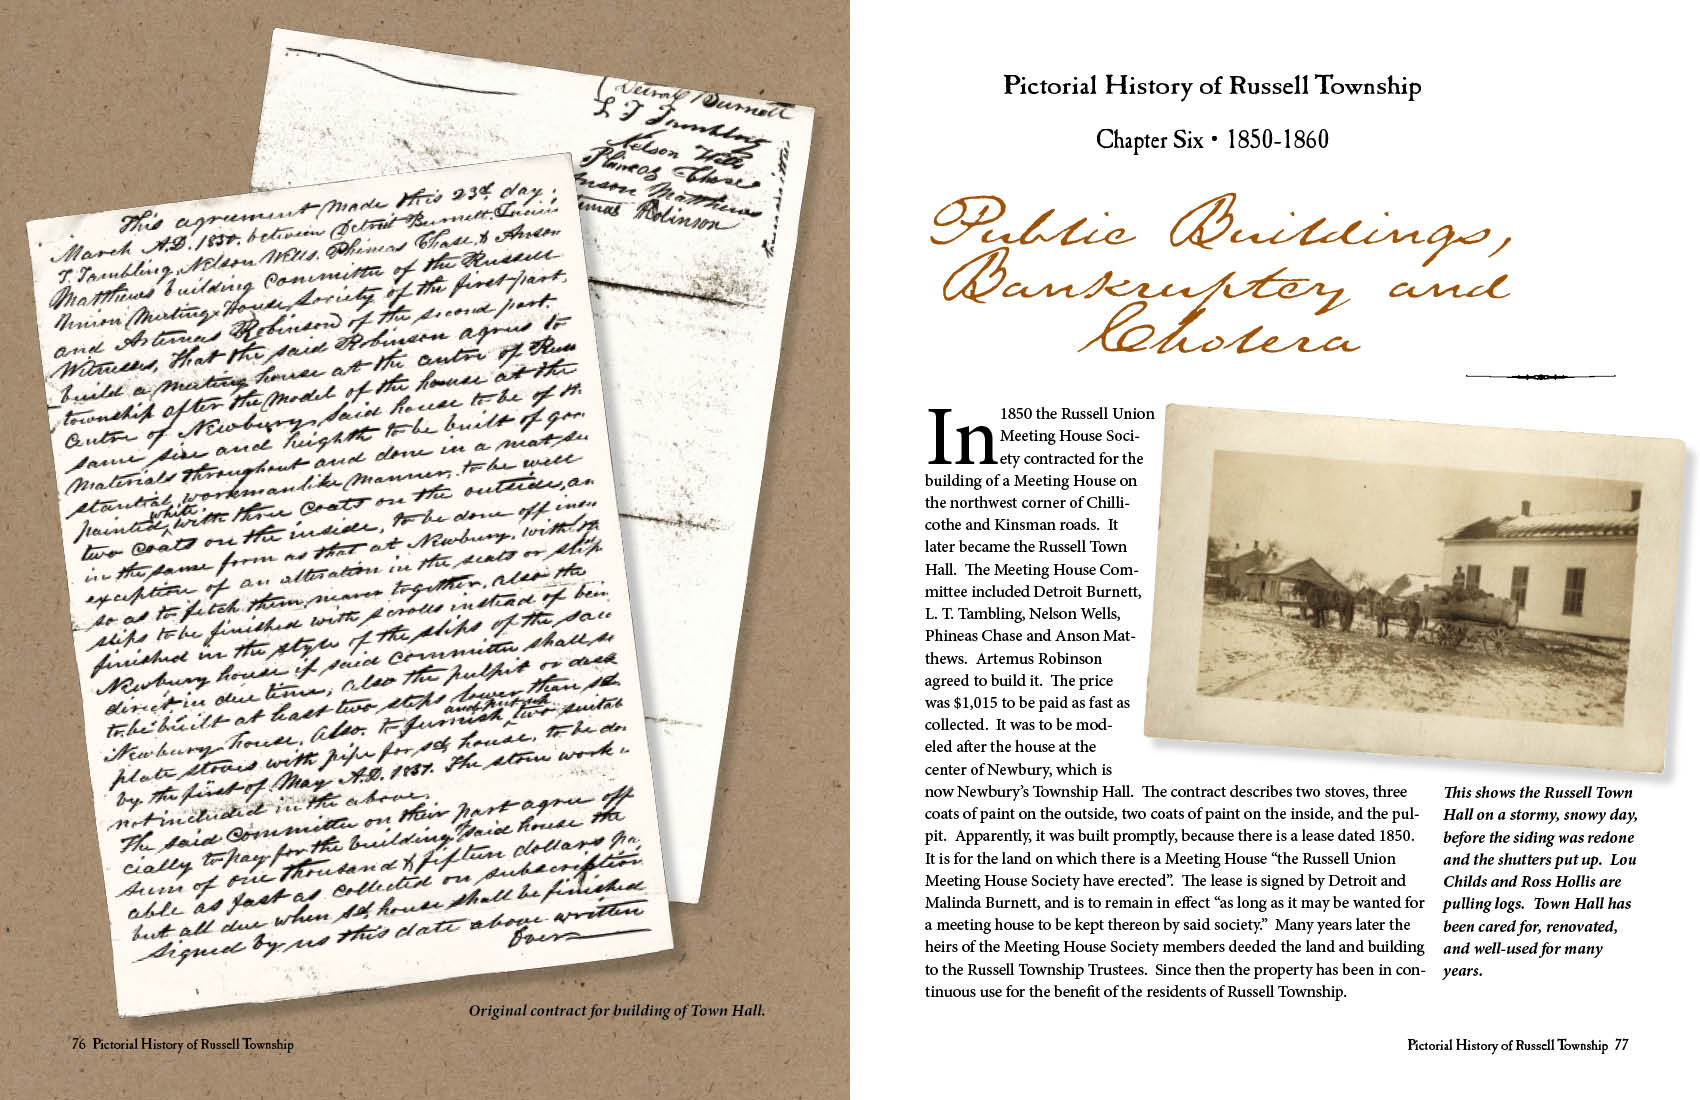 (Detroit Burnett
L T Tambling
Nelson Wells
Phineas Chase
Anson Matthews
temas Robinson
This agreement made this 23d day
March A.D. 1850. between Detroit Burnett. Lucius
T. Tambling, Nelson Wells. Phineas Chase. & Anson
Matthews building Committee of the Russell
Union Meeting House, Society of the first part,
and Artemas Robinson of the second part.
Witnesses, that the said Robinson agrees to
build a meeting house at the centre of Russ
township after the Model of the house at the
Centre of Newbury, said house to be of th
same size and heighth to be built of goo
Materials throughout and done in a neat su
stantial, workmanlike Manner, to be well
painted, white with three coats on the outside, an
two coats on the inside, to be done off insi
in the same form as that at Newbury, with th
exception of an alteration in the seats or slip
so as to fetch them nearer together, also the
slips to be finished with scrolls instead of
finished in the style of the slips of the sa
Newbury house if said committee shall so
direct in due time, also the pulpit or desk
to be built at least two steps lower than sd
Newbury house, also. to furnish and put up two suitab
plate stoves with pipe for sd, house, to be do
by the first of May A.D. 1851. The stone work
not included in the above.
The said Committee on their part agree off
cially to pay for the building said house the
sum of one thousand & fifteen dollars pa
able as fast as collected on subscription
but all due when sd, house shall be finished
signed by us this date above written
Over
Original contract for building of Town Hall.
76 Pictorial History of Russell Township
Pictorial History of Russell Township
Chapter Six • 1850-1860
Public Buildings,
Bankruptcy and
Cholera
In 1850 the Russell Union
Meeting House Soci-
ety contracted for the
building of a Meeting House on
the northwest corner of Chilli-
cothe and Kinsman roads. It
later became the Russell Town
Hall. The Meeting House Com-
mittee included Detroit Burnett,
L. T. Tambling, Nelson Wells,
Phineas Chase and Anson Mat-
thews. Artemus Robinson
agreed to build it. The price
was $1,015 to be paid as fast as
collected. It was to be mod-
eled after the house at the
center of Newbury, which is
now Newbury's Township Hall. The contract describes two stoves, three
coats of paint on the outside, two coats of paint on the inside, and the pul-
pit. Apparently, it was built promptly, because there is a lease dated 1850.
It is for the land on which there is a Meeting House “the Russell Union
Meeting House Society have erected”. The lease is signed by Detroit and
Malinda Burnett, and is to remain in effect “as long as it may be wanted for
a meeting house to be kept thereon by said society.” Many years later the
heirs of the Meeting House Society members deeded the land and building
to the Russell Township Trustees. Since then the property has been in con-
tinuous use for the benefit of the residents of Russell Township.
This shows the Russell Town
Hall on a stormy, snowy day,
before the siding was redone
and the shutters put up. Lou
Childs and Ross Hollis are
pulling logs. Town Hall has
been cared for, renovated,
and well-used for many
years.
Pictorial History of Russell Township 77